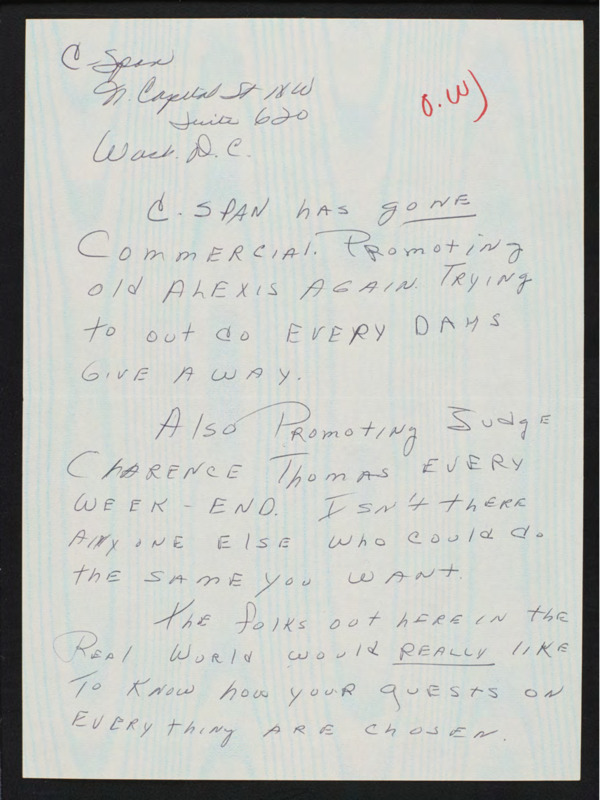 C-Span
N. Capital St NW
Suite 620
Wash. D.C.
O.W)
C. SPAN HAS gONE
COMMERCIAl. PROMOTiNg
old ALEXIS AGAIN. TRYING
to out do EVERY DAYS
GIVE AWAY.
Also PROMOTiNg Judge
ClARENCE Thomas EVERY
WEEK-END. ISN't thERE
ANYONE ElSE who could do
the SAME you WANT.
thE folks out hERE iN thE
REAl WORld would REALLY liKE
To KNOW how youR guESTS ON
EVERYthiNg ARE chosEN.